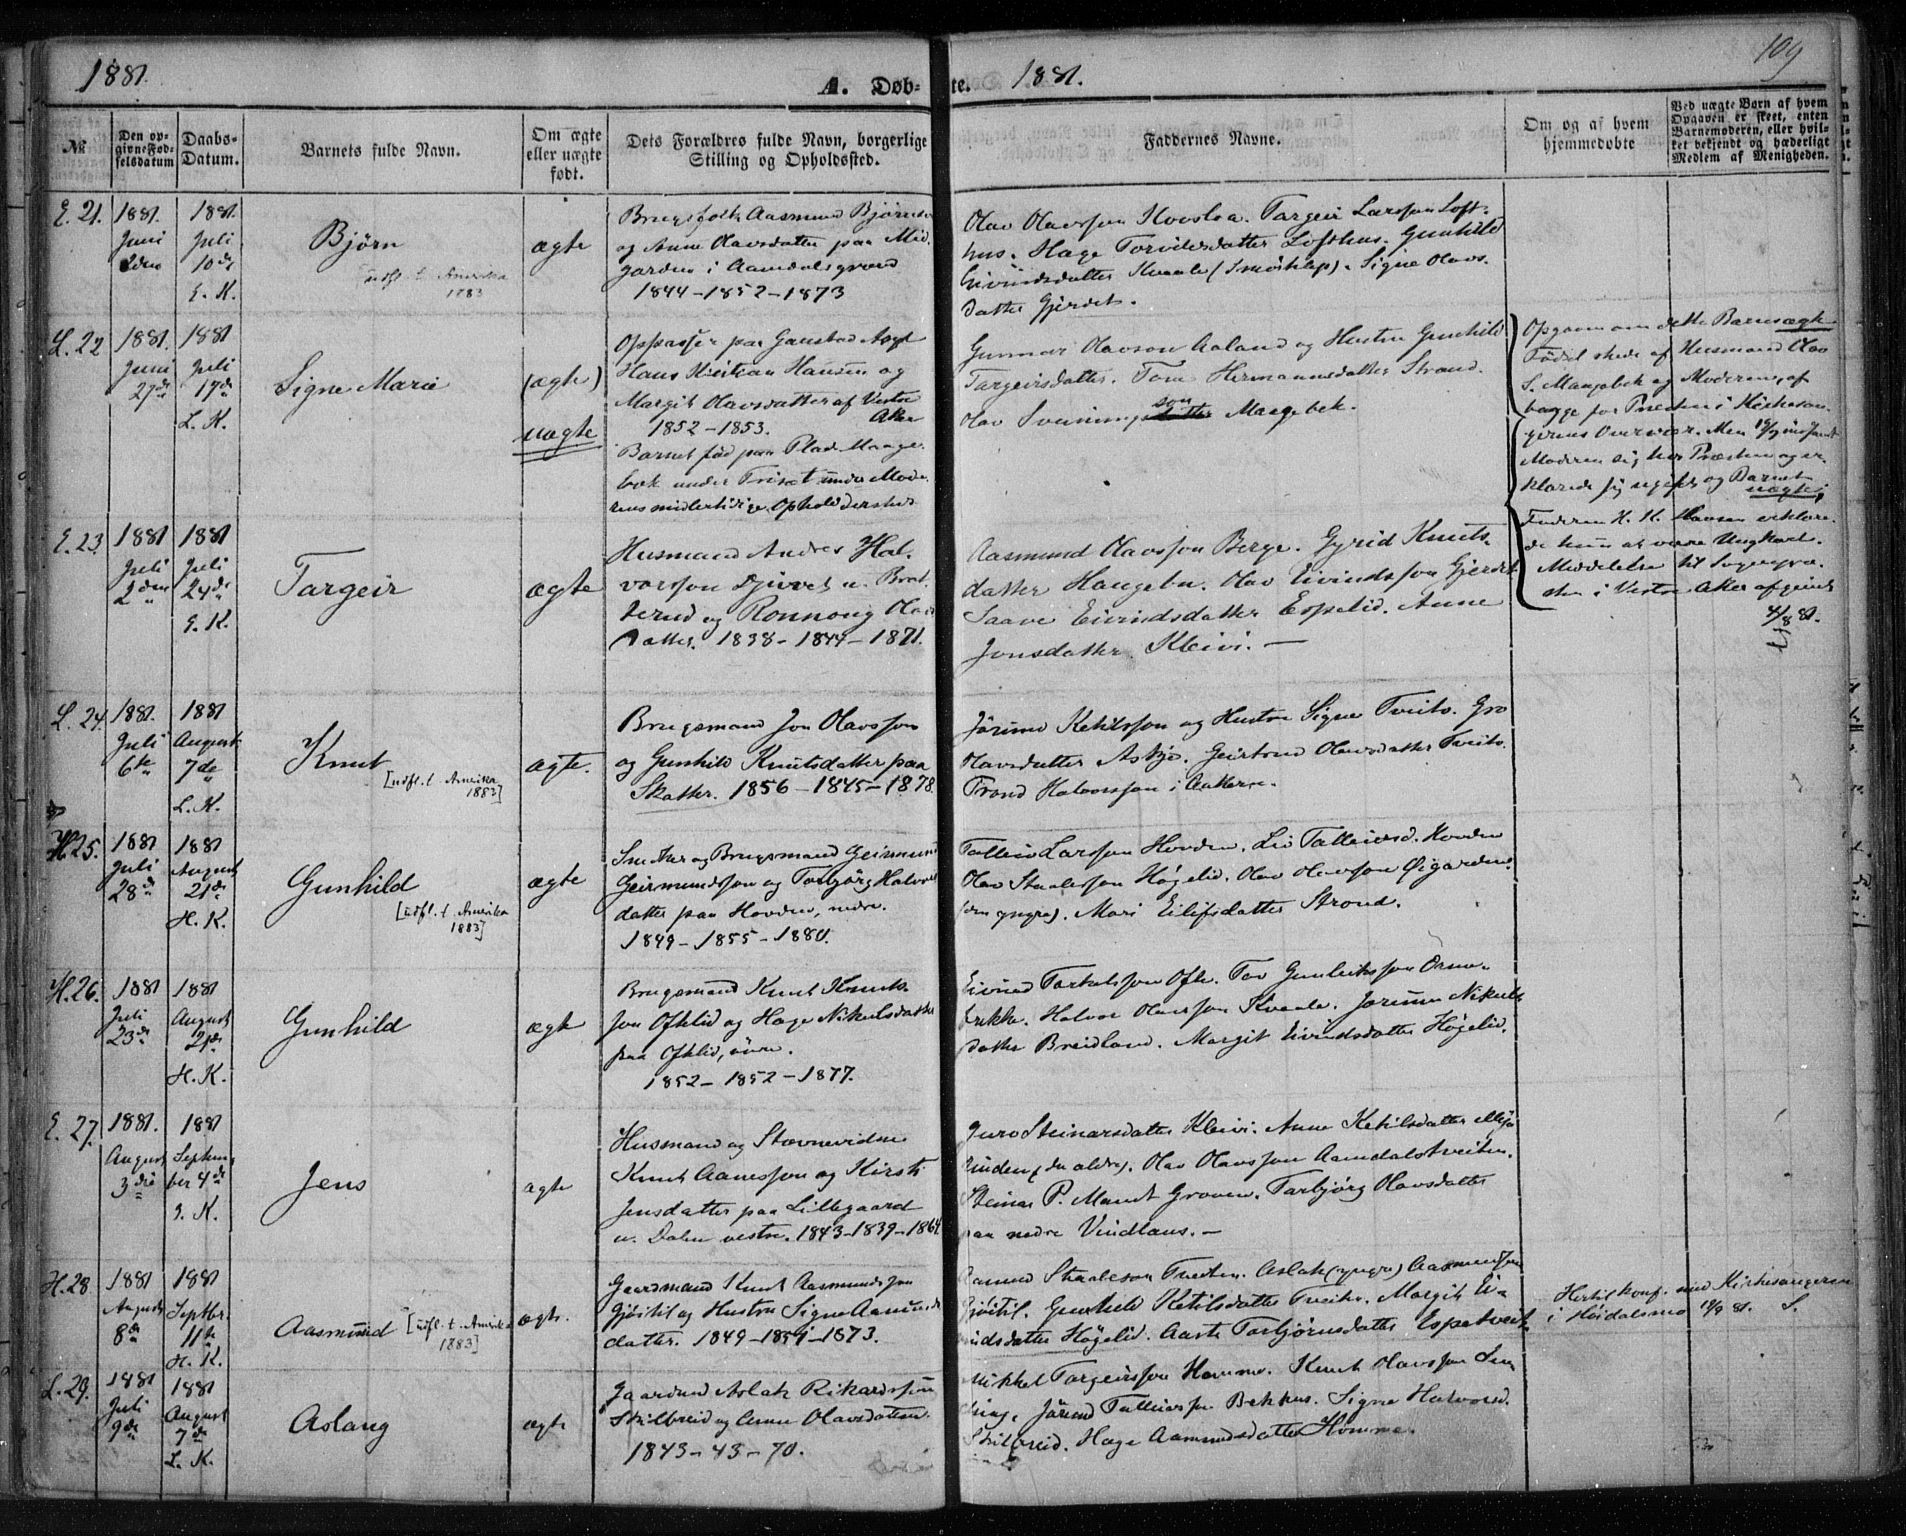 1881.
A. Døb-
te.
1881.
109
№
Den op-
givne Fød-
selsdatum
Daabs-
Datum.
Barnets fulde Navn.
Om ægte
eller uægte
født.
Dets Forældres fulde Navn, borgerlige
Stilling og Opholdssted.
Faddernes Navne.
Om og af hvem
hjemmedøbte
Ved uægte Barn af hvem
Opgaven er skeet, enten
Barnemoderen, eller hvil-
ket bekjendt og hæderligt
Medlem af Menigheden.
E. 21.
1881.
Juni
1881.
Juli
10de
E. K.
Bjørn
udfl. t. Amerika
1883
ægte
Brugsfolk Aasmund Bjørns
og Anne Olavsdatter paa Mid-
garden i Aamdalsgrænd
1844-1852-1873
Olav Olavsson Hovslva. Targeir Larsson Loft-
hus. Hæge Torvilsdatter Lofthus. Gunhild
Eivindsdatter Kvaale (Smørklep). Signe Olavs-
datter Gjerdet.
L. 22
1881.
Juni
27de
1881
Juli
17de
L. K.
Signe Marie
(ægte)
uægte
Oppasser paa Gaustad Asyl
Hans Kristian Hansen og
Margit Olavsdatter af Vestre
Aker
1852-1853.
Barnet fød paa Plads Maage-
bæk under Triset under Mode-
rens midlertidige Ophold dersteds
Gunnar Olavson Aaland og Hustru Gunhild
Targeirsdatter. Tone Hermannsdatter Strand.
Olav Sveinungsdatter son Maagebek.
Opgaven om dette Barns ægte
Fødsel skede af Husmand Olav
S. Maagebek og Moderen, af
begge for Præsten i Kirkesan-
gerens Overvær. Men
Moderen sig hos Præsten og er-
klærede sig ugift og Barnet
uægte;
Faderen H. K. Hansen erklære-
de hun at være Ungkarl.
Meddelelse til Sognepræ-
sten i Vestre Aker afgivet
4/8 81.
E. 23.
1881
Juli
2den
1881
Juli
24de
E. K.
Targeir
ægte
Husmand Andres Hal-
vorsson Djuvet u. Brat-
terud og Rønnoug Olavs
datter. 1838-1844-1871.
Aasmund Olavsson Berge. Gyrid Knuts-
datter Haugebn. Olav Eivindsson Gjerdet
Saave Eivindsdatter Espelid. Anne
Jonsdatter Kleivi. —
L. 24.
1881.
Juli
6te
1881
August
7de
L. K.
Knut
[udfl. t. Amerika
1883]
ægte.
Brugsmand Jon Olavsson
og Gunhild Knutsdatter paa
Skatter. 1856-1845-1878.
Jørund Ketilsson og Hustru Signe Tveito. Gro
Olavsdatter Askje. Geirtrud Olavsdatter Tveito.
Trond Halvorsson i Aakeren.
H. 25.
1881
Juli
28de
1881
August
21de
H. K.
Gunhild
[udfl. t. Amerika
1883]
ægte
Snekker og Brugsmand Geirmund
Geirmundsson og Torbjørg Halvors
datter paa Hovden, nedre.
1849-1855-1880.
Talleiv Larsson Hovden. Liv Talleivsd. Hovden
Olav Staalesson Høgelid. Olav Olavsson Øigarden
(den yngre). Mari Eilifsdatter Strond.
H. 26.
1881
Juli
23de
1881
August
21de
H. K.
Gunhild
ægte
Brugsmand Knut Knuts-
son Oftelid og Hæge Nikulsdatter
paa Oftelid, øvre.
1852-1852-1877.
Eivind Torkelsson Ofte. Tov Gunleiksson Orme-
brekke. Halvor Olavsson Kvaale. Jorunn Nikuls
datter Breidland. Margit Eivindsdatter Høgelid.
E. 27.
1881.
August
3die
1881
Septem-
ber 4de
E. K.
Jens
ægte
Husmand og Stævnevidne
Knut Aanesson og Kirsti
Jensdatter paa Lillegaard
u. Dalen vestre. 1843-1839-1864.
Guro Steinarsdatter Kleivi. Anne Ketilsdatter
(den ældre). Olav Olavsson Aamdalstveiten.
Steinar P. Mandt Groven. Tarbjørg Olavsdatter
paa nedre Vindlaus. —
H. 28
1881
August
8de
1881
Septbr.
11te
H. K.
Aasmund
[udfl. t. Amerika
1883]
ægte.
Gaardmand Knut Aasmundsson
Gjøitil og Hustru Signe Aanunds
datter. 1849-1851-1873.
Aanund Staaleson Tveiten. Aslak (yngre) Aasmundson
Gjøitil. Gunhild Ketilsdatter Tveito. Margit Ei-
vindsdatter Høgelid. Aaste Torbjørnsdatter Espetveit
Hertil konf. med Kirkesangeren
i Høidalsmo 11/9 81. S.
L. 29.
1881
Juli
9de
1881
August
7de
L. K.
Aslaug
ægte
Gaardmd Aslak Rikardsson
Skilbreid og Anne Olavsdatter
1843-43-70.
Mikkel Targeirsson Homme. Knut Olavsson
Jørund Talleivssøn Bekhus. Signe Halvorsd.
Skilbreid. Hæge Aamundsdatter Homme.